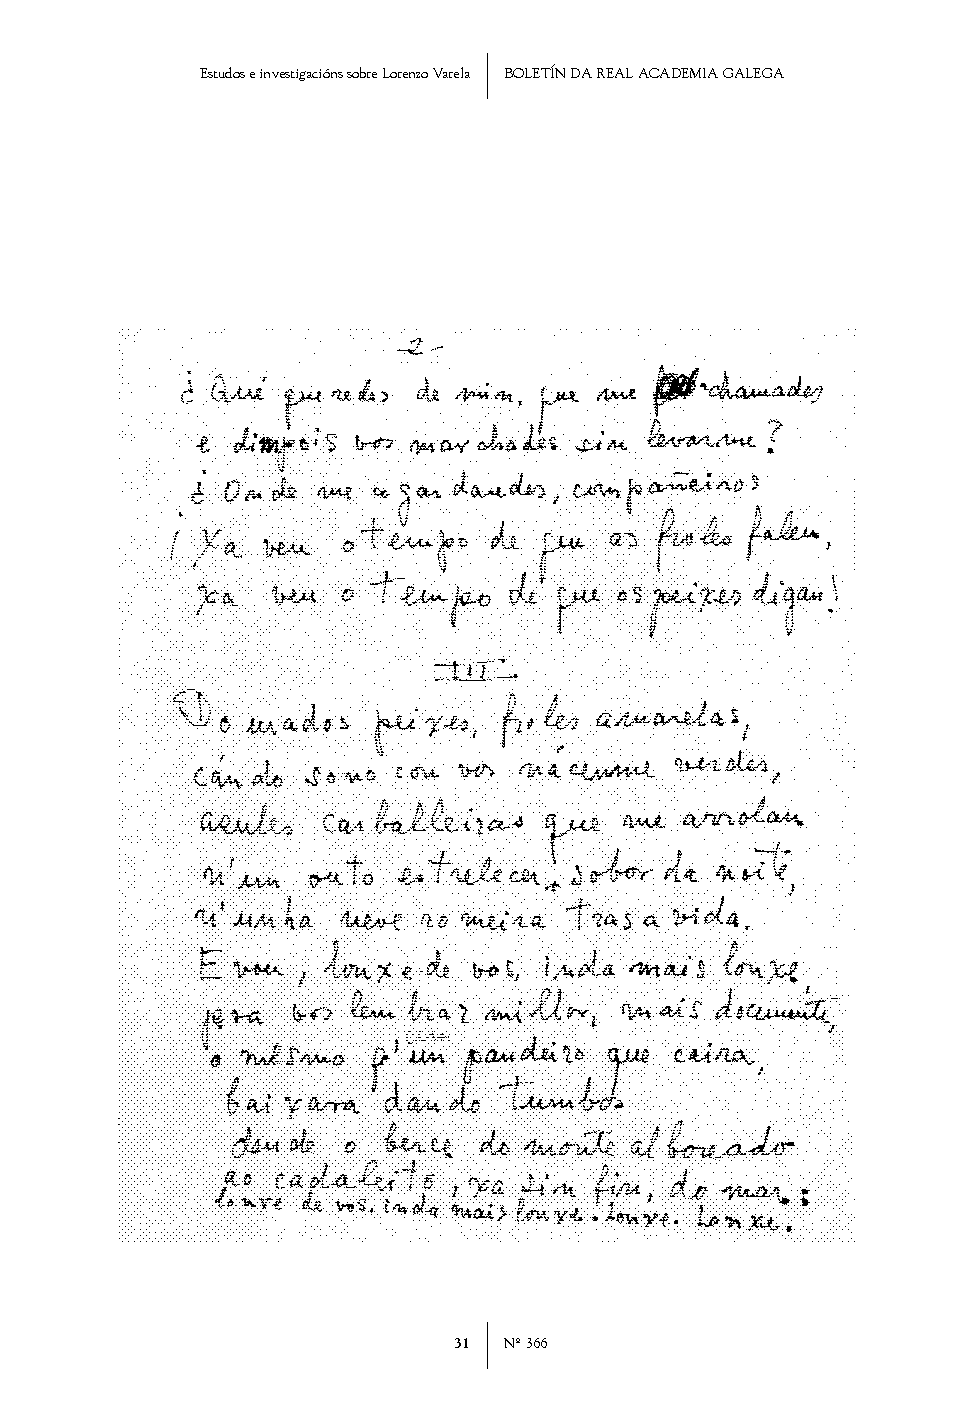 Estudos e investigacións sobre Lorenzo Varela
BOLETÍN DA REAL ACADEMIA GALEGA
-2-
¿Qué queredes de min, que me chamades
e dimpois vos marchades sin levarme?
¿Onde me agardades, compañeiros
¡Xa ven o tempo de que as froles falen,
xa ven o tempo de que os peixes digan!
III.
Domados peixes, froles amarelas,
cándo sono con vos nácenme verdes,
azules carballeiras que me arrolan
n'un outo estrelecer, sobor da noite,
n'unha neve romeira tras a vida.
E vou, lonxe de vos, inda mais lonxe,
pera vos lembrar millor, mais docemente,
o mésmo q'un pandeiro que caira,
baixara dando tumbos
dende o berce do monte alboreado
ao cadaleito, xa sin fin, do mar:
lonxe de vos, inda mais lonxe. Lonxe. Lonxe.
31
Nº 366